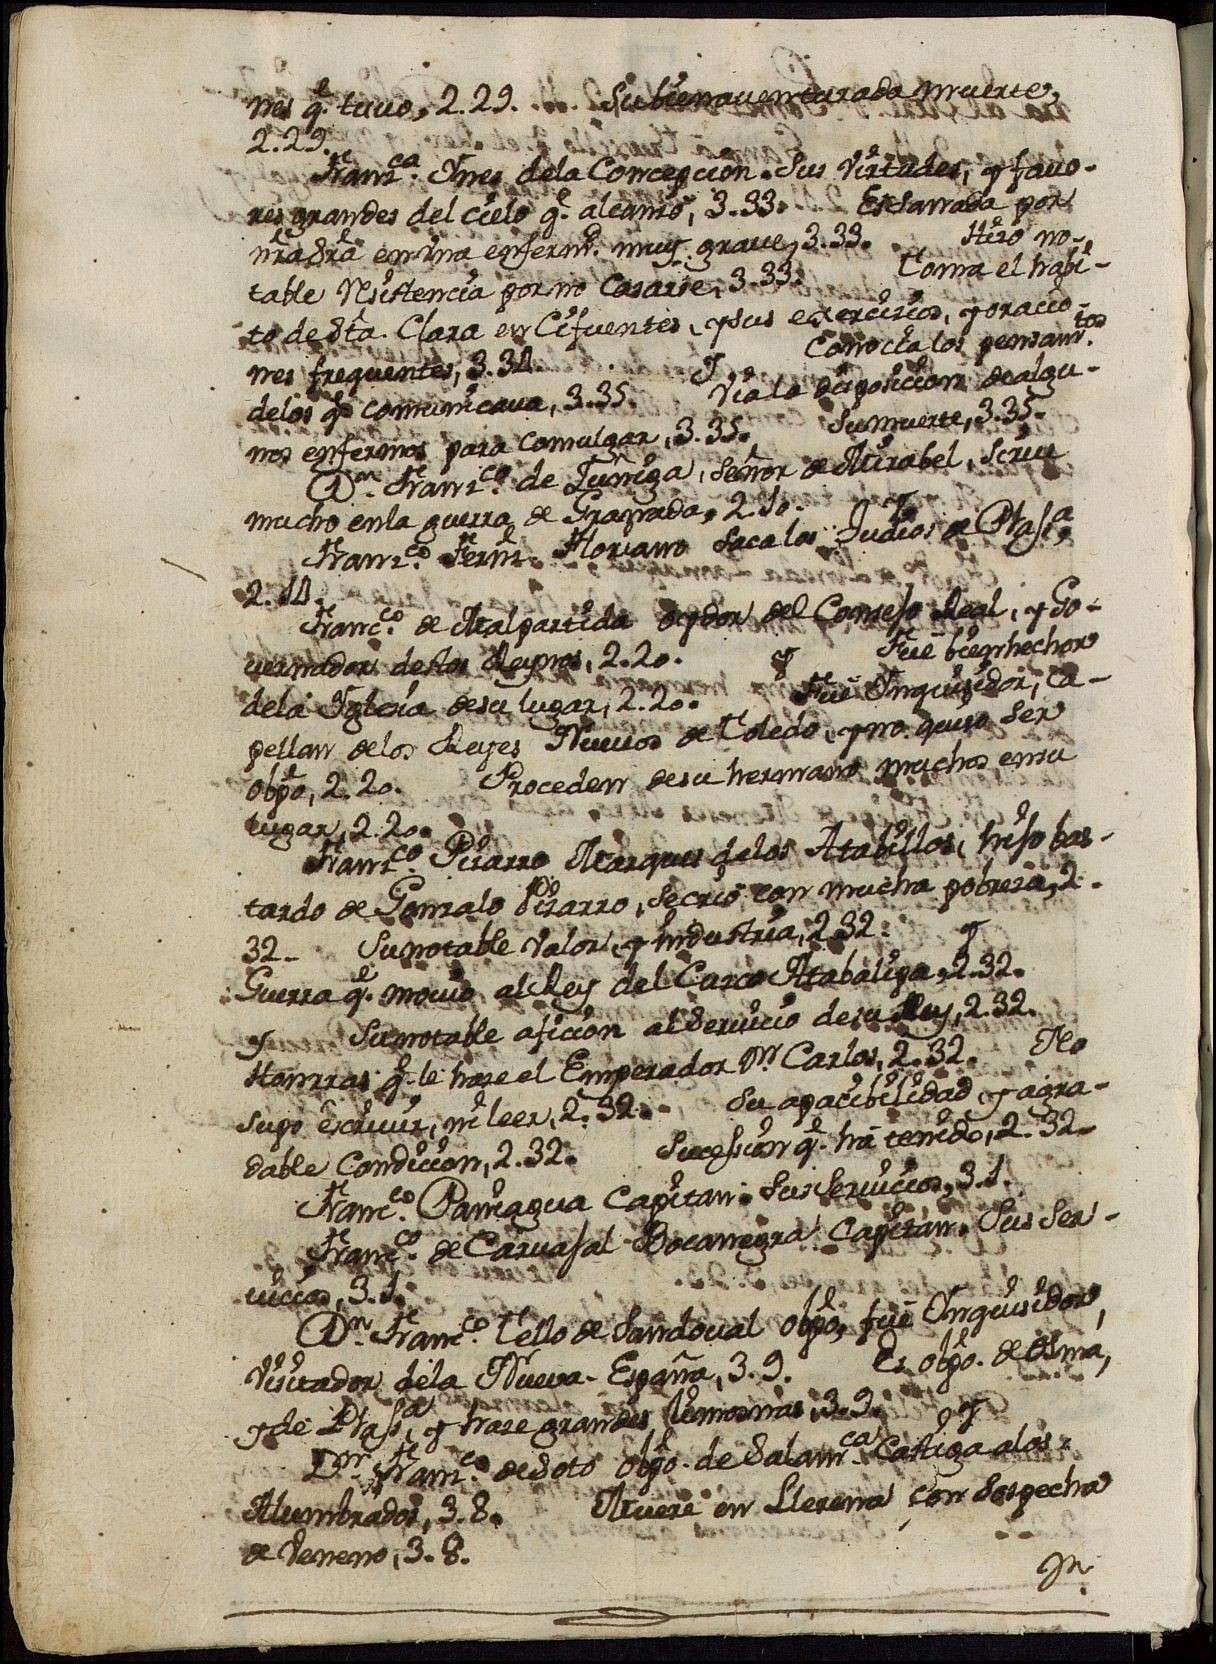 nes q.e tuuo, 2.29. Su bienauenturada muerte,
2.29.
Franc.ca Ynes dela Concepcion. Sus Virtudes, y fauo-
res grandes del cielo q.e alcanso, 3.33. Es sanada por
nra Sra en vna enferm.d muy graue, 3.33. Hizo no-
table resistencia por no casarse, 3.33. Toma el habi-
to de Sta. Clara en Cifuentes, y sus exercicios, y oracio-
nes frequentes, 3.34. y Conocia los pensam.tos
delos q.e comunicaua, 3.35. Via la disposicion de algu-
nos enfermos para comulgar, 3.35. Su muerte, 3.35.
Dn. Franc.co de Zuñiga, señor de Mirabel, siruu
mucho en la guerra de Granada, 2.10. y
Franc.co Fern. Floriano saca los Judios de Plas.a,
2.14.
Franc.co de Malpartida oydor del Consejo Real, y Go-
uernador destos Reynos, 2.20. y Fue bienhechor
dela Yglesia de su lugar, 2.20. Fue Ynquisidor, Ca-
pellan delos Reyes Nueuos de Toledo, y no quiso ser
obpo, 2.20. Proceden de su hermano muchos en su
lugar, 2.20.
Franc.co Pizarro Marques delos Atabillos, hijo bas-
tardo de Gonzalo Pizarro, se crió con mucha pobreza, 2.
32. Su notable valor, y industria, 2.32. y
Guerra q.e mouio al Rey del Cuzco Atabaliga, 2.32.
y Su notable aficion al seruicio de su Rey, 2.32.
Honrras q.e le haze el Emperador Dn Carlos, 2.32. No
supo escriuir, ni leer, 2.32. Su apacibilidad, y agra-
dable condicion, 2.32. Sucession q.e ha tenido, 2.32.
Franc.co Paniagua Capitan. Sus seruicios, 3.1.
Franc.co de Caruajal Bocanegra Capitan. Sus ser-
uicios, 3.1.
Dn. Franc.co Tello de Sandoual obpo, fue Ynquisidor,
Visitador dela Nueva-España, 3.9. Es obpo. de Osma,
y de Plas.a, y haze grandes limosnas, 3.9. y
Dn. Franc.co de Soto obpo. de Salam.ca Castiga alos
Alumbrados, 3.8. Muere en Llerena con sospecha
de veneno, 3.8.